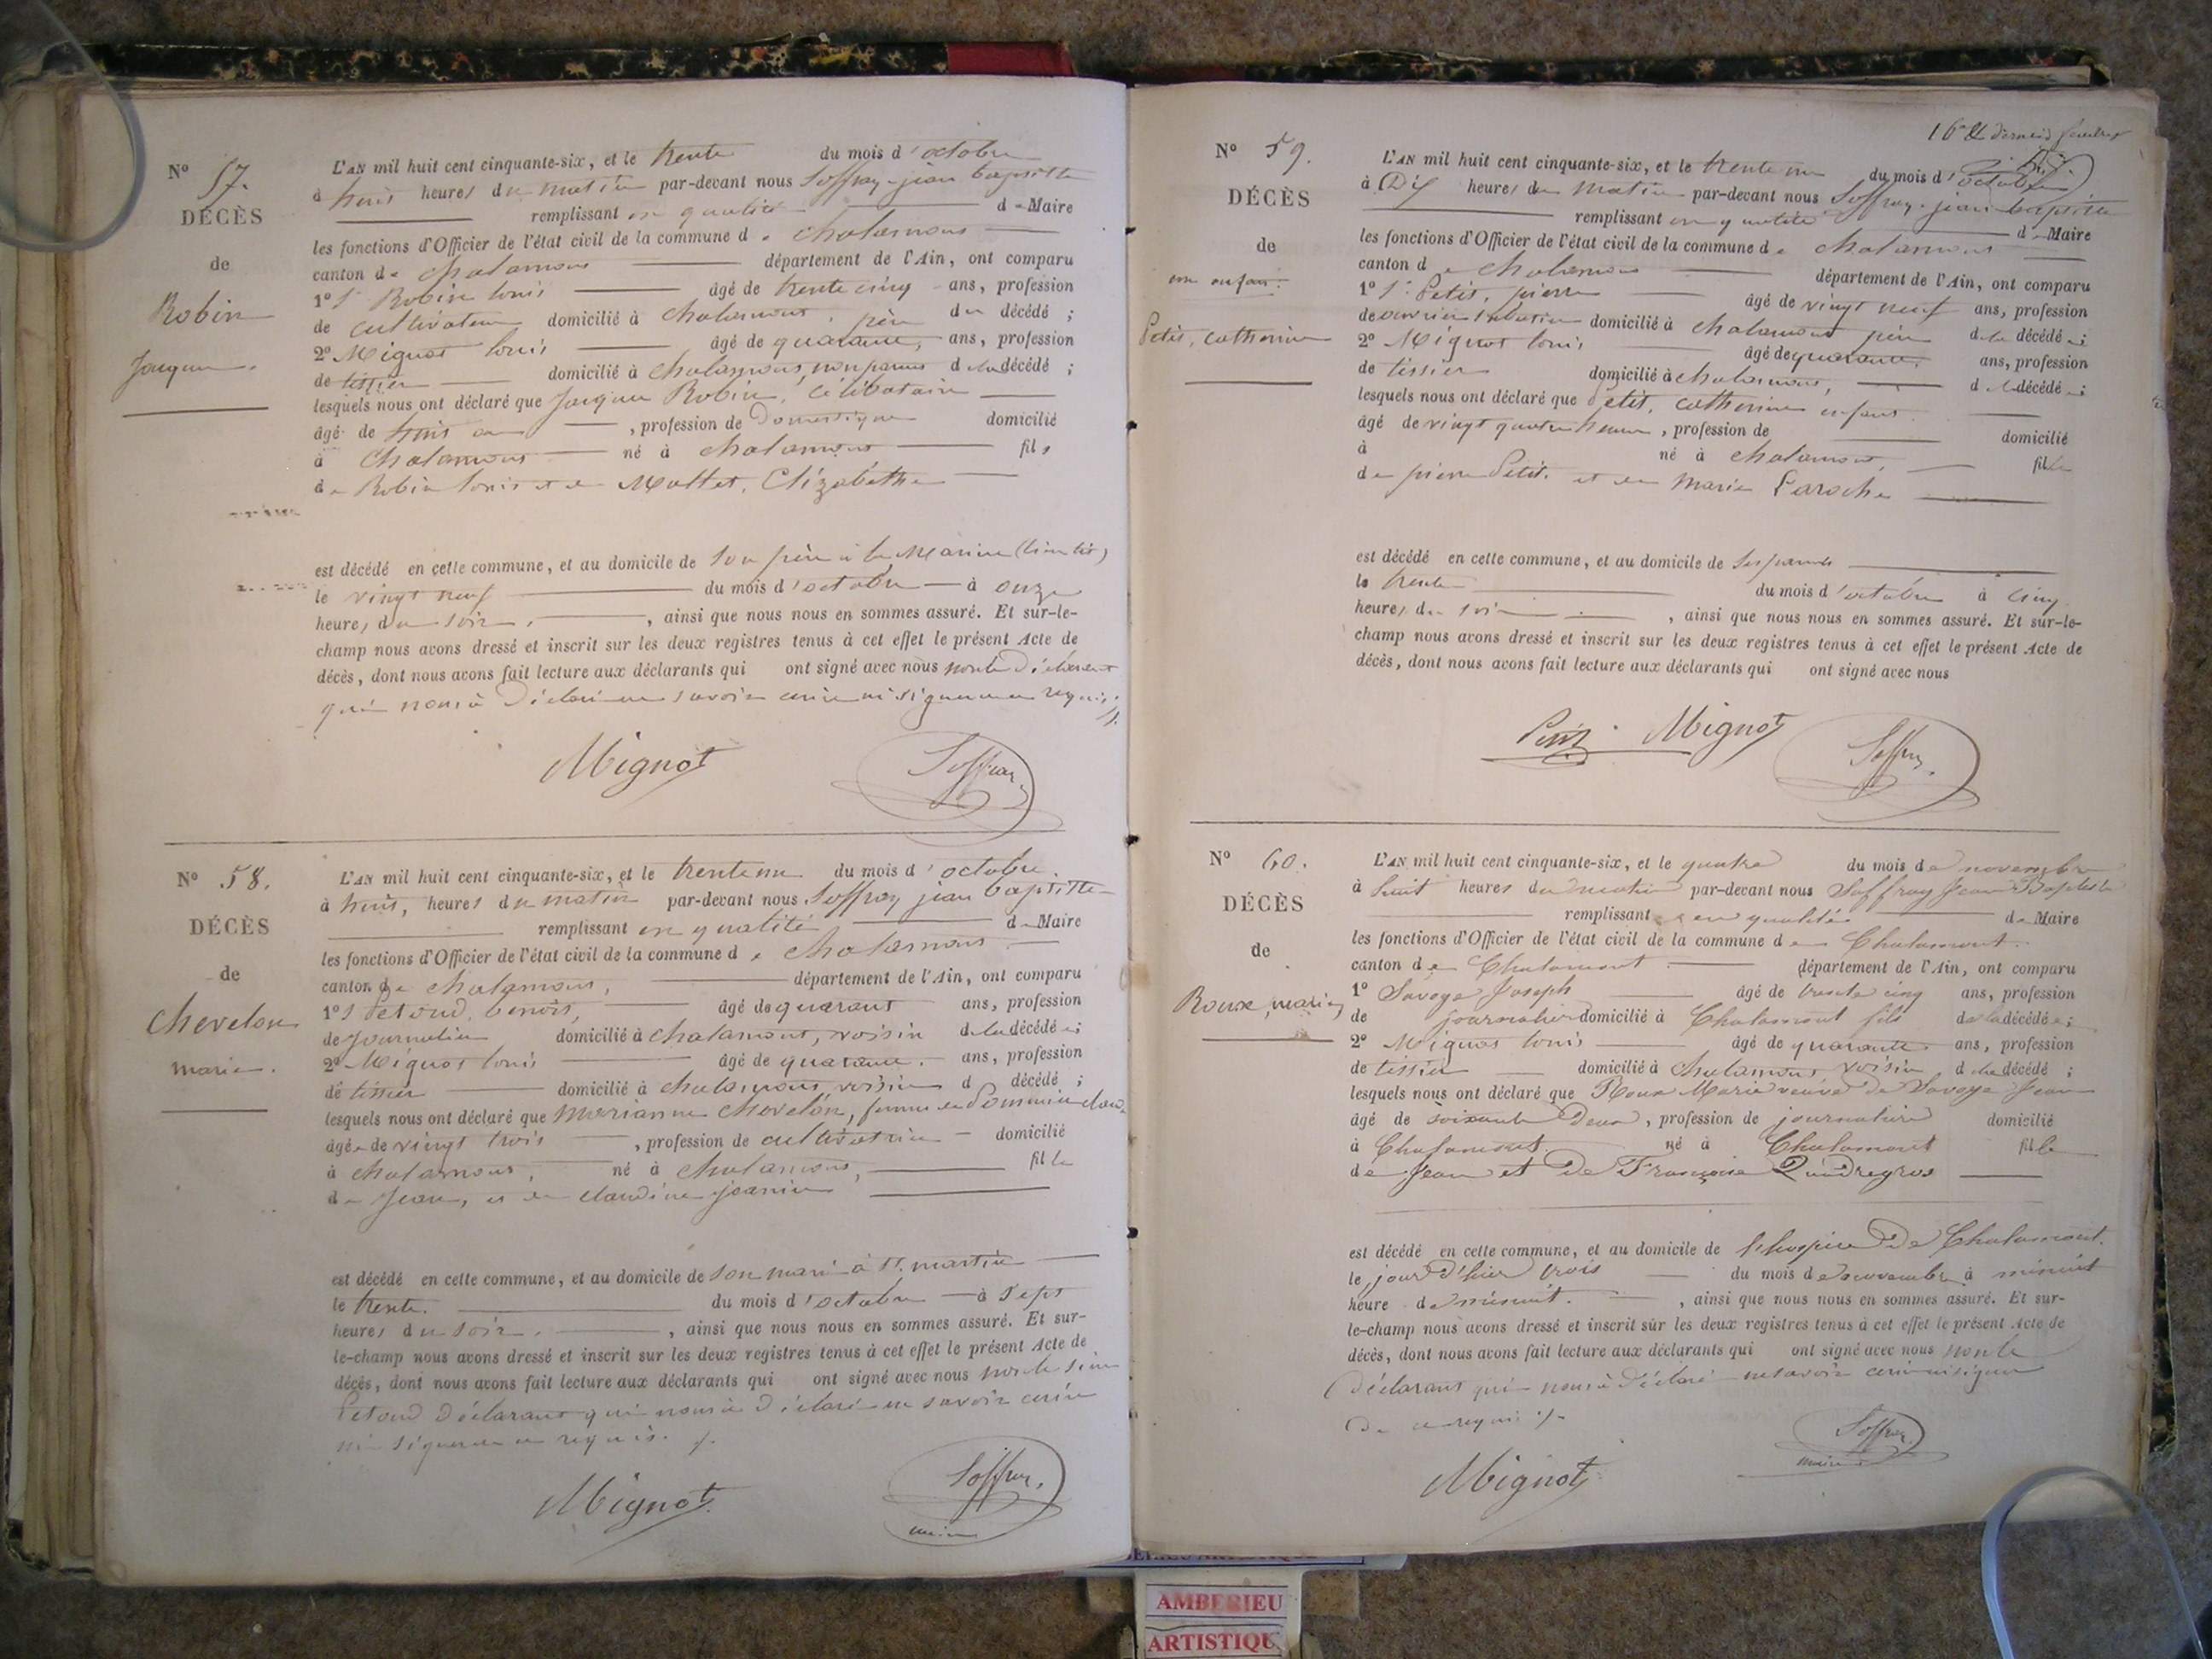 N° 57.
DÉCÈS
de
Robin
Jacques.
L'AN mil huit cent cinquante-six, et le trente du mois d'octobre
à trois heures du matin par-devant nous Soffray jean baptiste
remplissant en qualité de Maire
les fonctions d'Officier de l'état civil de la commune de chalamont
canton de chalamont département de l'Ain, ont comparu
1° Robin louis âgé de trente cinq ans, profession
de cultivateur domicilié à chalamont, père du décédé ;
2° Mignot louis âgé de quarante, ans, profession
de tissier domicilié à chalamont, non parent du décédé ;
lesquels nous ont déclaré que Jacques Robin, célibataire
âgé de trois an , profession de Domestique domicilié
à chalamont né à chalamont fils
de Robin louis et de Mottet, Elizabethe
est décédé en cette commune, et au domicile de son père à la
le vingt neuf du mois d'octobre à onze
heures du soir, , ainsi que nous nous en sommes assuré. Et sur-le-
champ nous avons dressé et inscrit sur les deux registres tenus à cet effet le présent Acte de
décès, dont nous avons fait lecture aux déclarants qui ont signé avec nous non le déclarent
qui nous à déclaré ne savoir écrire ni signer de ce requis
Mignot Soffray
N° 58.
DÉCÈS
de
Chevelon
marie.
L'AN mil huit cent cinquante-six, et le trente un du mois d'octobre
à trois, heures du matin par-devant nous Soffray jean baptiste
remplissant en qualité de Maire
les fonctions d'Officier de l'état civil de la commune de chalamont
canton de chalamont, département de l'Ain, ont comparu
1° benoit, âgé de quarant ans, profession
de journalier domicilié à chalamont, voisin de la décédée ;
2° Mignot louis âgé de quarante. ans, profession
de tissier domicilié à chalamont, voisin d décédé ;
lesquels nous ont déclaré que Marianne chevelon, femme de
âgée de vingt trois , profession de cultivatrice domicilié
à chalamont, né à chalamont, fille
de Jean, et de claudine jeanin
est décédé en cette commune, et au domicile de son mari à St. martin
le trente. du mois d'octobre à sept
heures du soir. , ainsi que nous nous en sommes assuré. Et sur-
le-champ nous avons dressé et inscrit sur les deux registres tenus à cet effet le présent Acte de
décès, dont nous avons fait lecture aux déclarants qui ont signé avec nous non le sieur
déclarant qui nous à déclaré ne savoir écrire
ni signer de ce requis.
Mignot Soffray
maire
N° 59.
DÉCÈS
de
un enfant.
Petit, catherine
16e & dernier feuillet
L'AN mil huit cent cinquante-six, et le trente un du mois d'octobre
à Dix heures du matin par-devant nous Soffray jean baptiste
remplissant en qualité de Maire
les fonctions d'Officier de l'état civil de la commune de chalamont
canton de chalamont département de l'Ain, ont comparu
1° Petit, pierre âgé de vingt neuf ans, profession
de ouvrier domicilié à chalamont père de la décédée ;
2° Mignot louis âgé de quarante. ans, profession
de tissier domicilié à chalamont, de la décédée ;
lesquels nous ont déclaré que Petit, catherine enfant
âgé de vingt quatre heure , profession de domicilié
à né à chalamont, fille
de pierre Petit. et de Marie Laroche
est décédé en cette commune, et au domicile de ses parents
le trente du mois d'octobre à cinq
heures du soir , ainsi que nous nous en sommes assuré. Et sur-le-
champ nous avons dressé et inscrit sur les deux registres tenus à cet effet le présent Acte de
décès, dont nous avons fait lecture aux déclarants qui ont signé avec nous
Petit Mignot Soffray
N° 60.
DÉCÈS
de
Roux, marie
L'AN mil huit cent cinquante-six, et le quatre du mois de novembre
à huit heures du matin par-devant nous Soffray Jean Baptiste
remplissant en qualité de Maire
les fonctions d'Officier de l'état civil de la commune de Chalamont
canton de Chalamont département de l'Ain, ont comparu
1° Savoye Joseph âgé de trente cinq ans, profession
de journalier domicilié à Chalamont fils de la décédée ;
2° Mignot louis âgé de quarante. ans, profession
de tissier domicilié à chalamont voisin de la décédé ;
lesquels nous ont déclaré que Roux Marie veuve de Savoye Jean
âgé de soixante deux, profession de journalière domicilié
à Chalamont né à Chalamont fille
de Jean et De Françoise
est décédé en cette commune, et au domicile de l'hospice De Chalamont.
le jour d'hier trois du mois de novembre à minuit
heure de minuit. , ainsi que nous nous en sommes assuré. Et sur-
le-champ nous avons dressé et inscrit sur les deux registres tenus à cet effet le présent Acte de
décès, dont nous avons fait lecture aux déclarants qui ont signé avec nous non le
déclarant qui nous à déclaré ne savoir écrire ni signer
De ce requis
Mignot Soffray
maire
AMBERIEU
ARTISTIQU